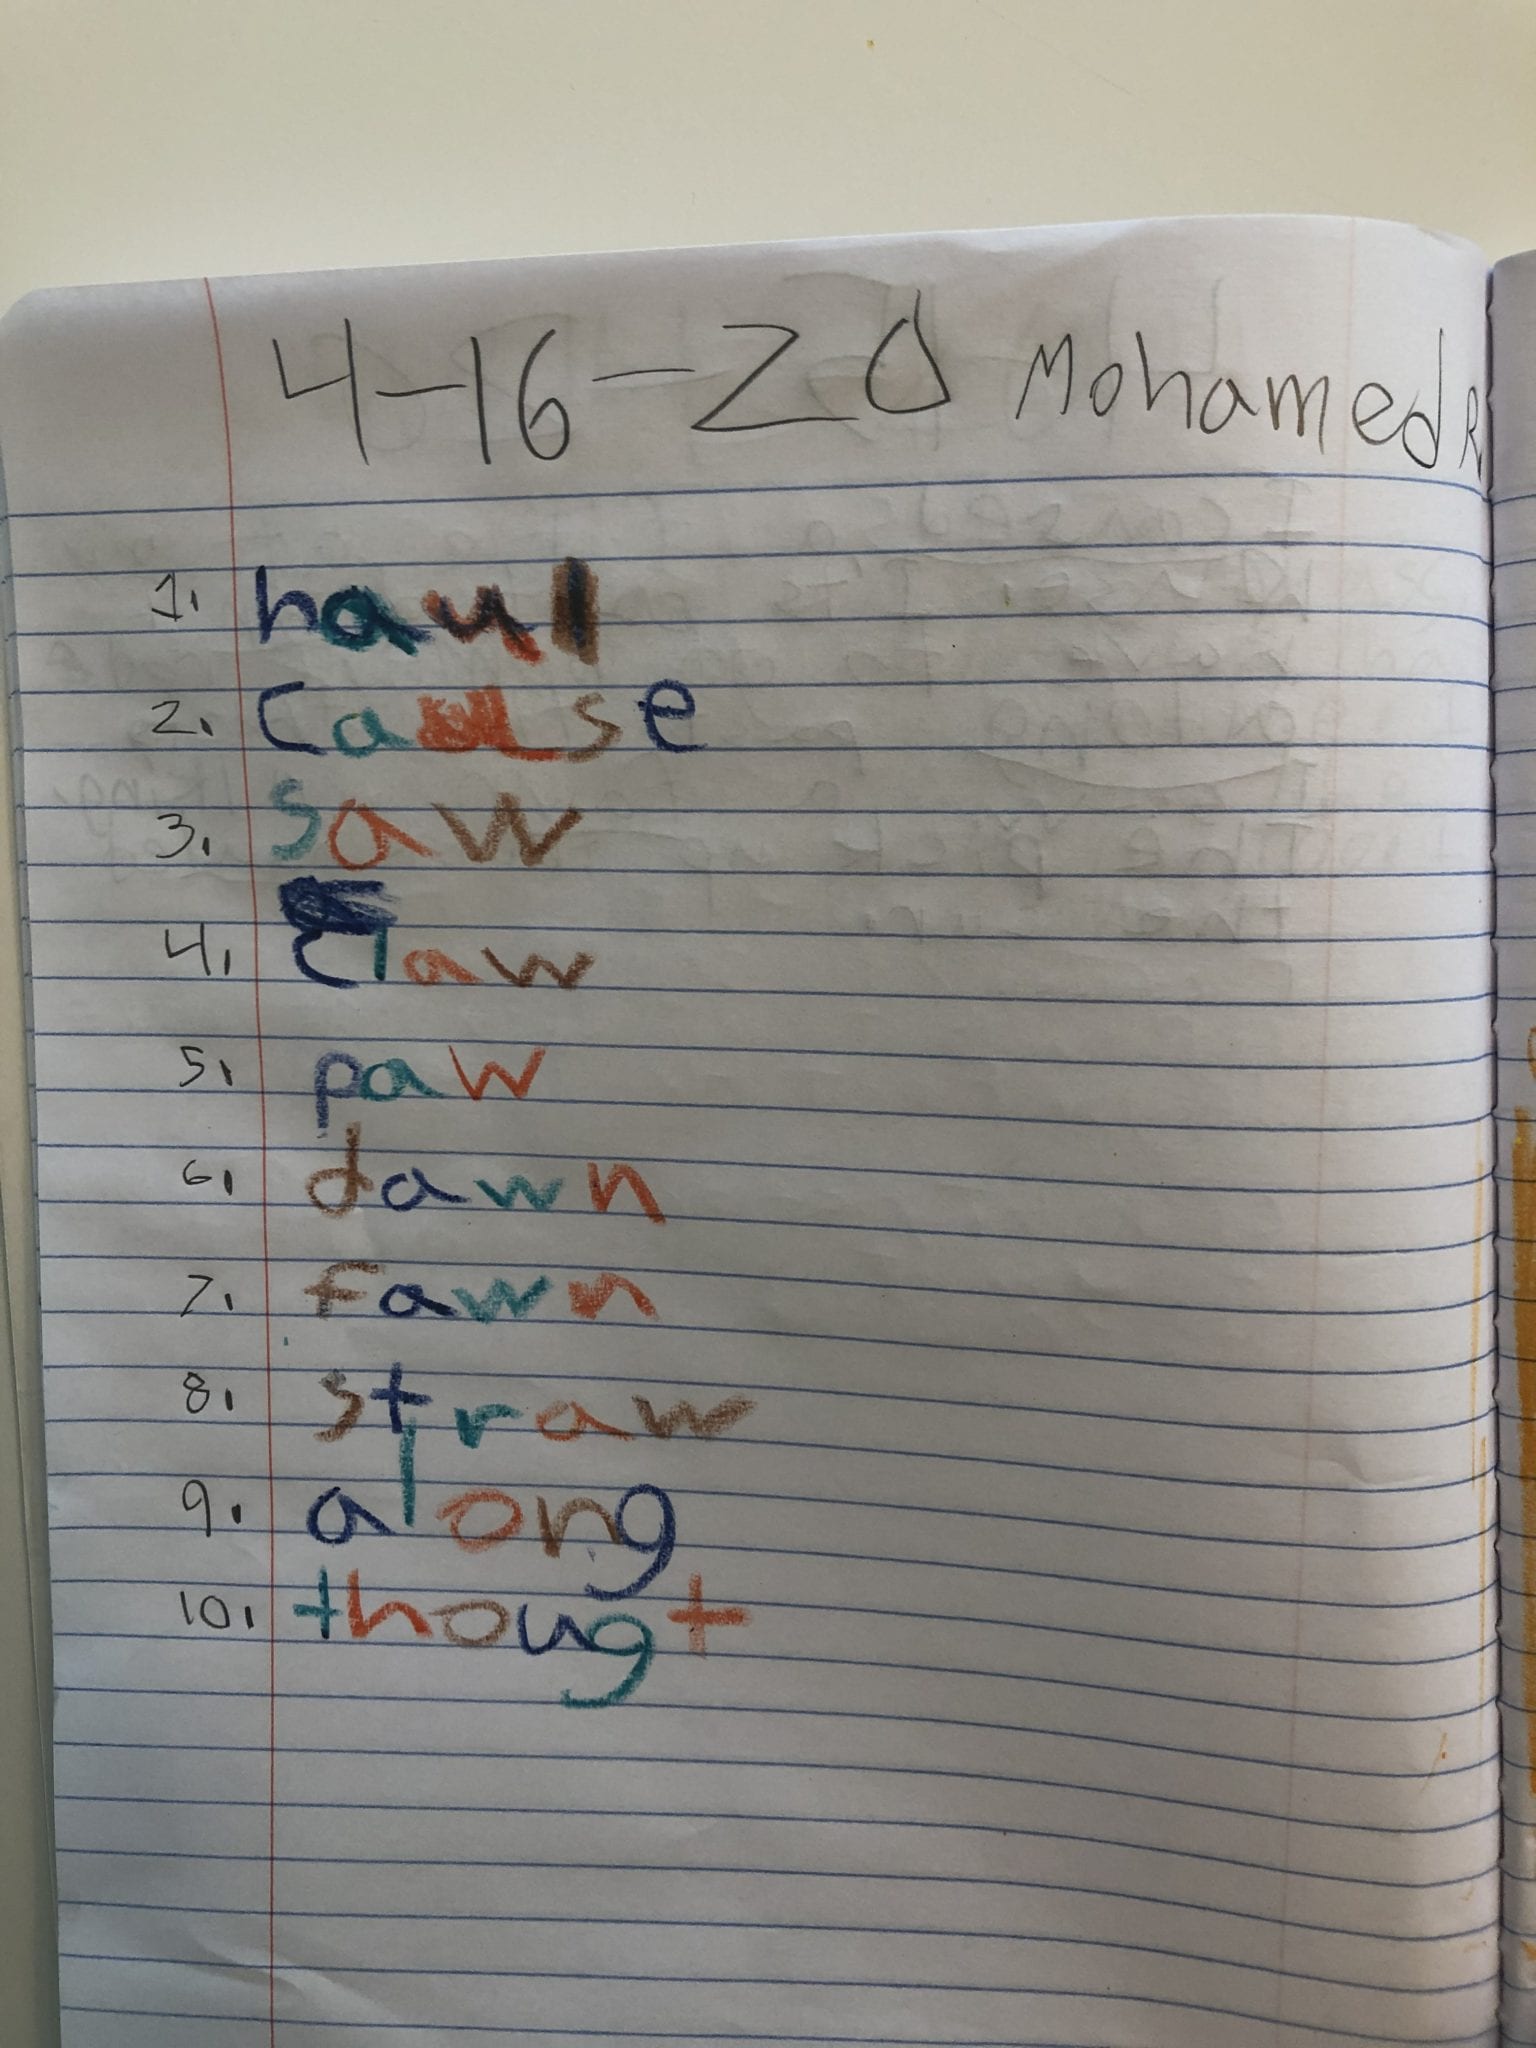 4-16-20 Mohamed R
1. haul
2. cause
3. saw
4. claw
5. paw
6. dawn
7. fawn
8. straw
9. along
10. thougt